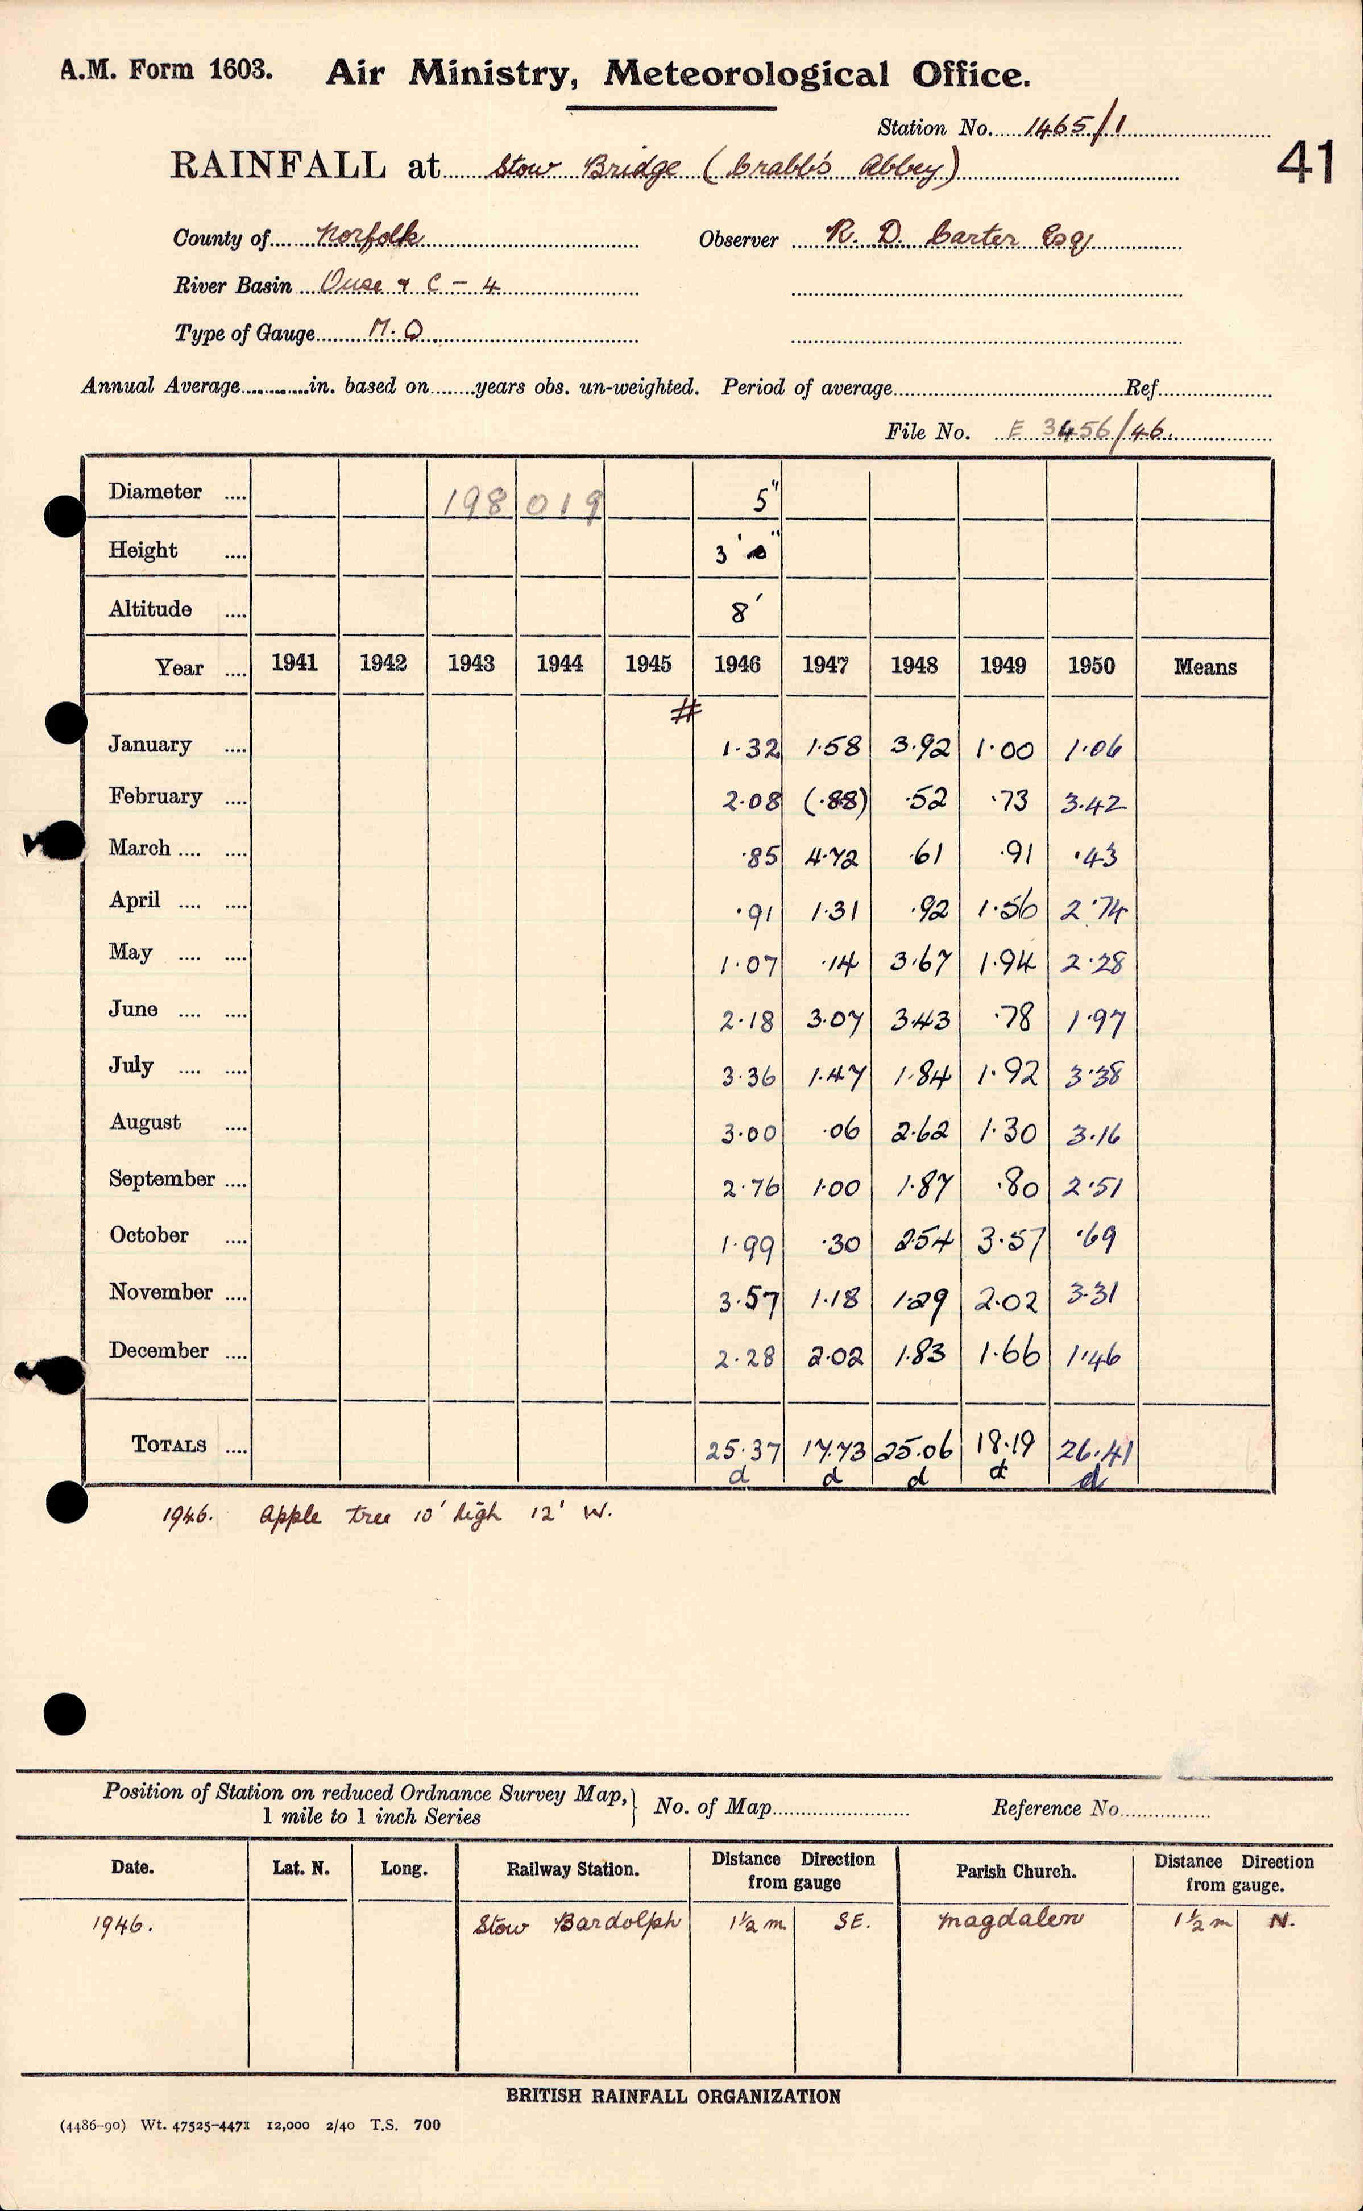 A.M. Form 1603. Air Ministry, Meteorological Office.
Station No. 1465/1
41
RAINFALL at Stow Bridge (Crabb's Abbey)
County of Norfolk Observer R. D. Carter Esq
River Basin Ouse & C - 4
Type of Gauge M.O.
Annual Average in. based on years obs. un-weighted. Period of average Ref.
File No. E 3456/46.
Diameter .... 198 019 5"
Height .... 3'
Altitude .... 8'
Year .... 1941 1942 1943 1944 1945 1946 1947 1948 1949 1950 Means
#
January .... 1.32 1.58 3.92 1.00 1.06
February .... 2.08 (.88) .52 .73 3.42
March .... .... .85 4.72 .61 .91 .43
April .... .... .91 1.31 .92 1.56 2.74
May .... .... 1.07 .14 3.67 1.94 2.28
June .... .... 2.18 3.07 3.43 .78 1.97
July .... .... 3.36 1.47 1.84 1.92 3.38
August .... 3.00 .06 2.62 1.30 3.16
September .... 2.76 1.00 1.87 .80 2.51
October .... 1.99 .30 2.54 3.57 .69
November .... 3.57 1.18 1.29 2.02 3.31
December .... 2.28 2.02 1.83 1.66 1.46
TOTALS .... 25.37 17.73 25.06 18.19 26.41
d d d d d
1946. Apple tree 10' high 12' W.
Position of Station on reduced Ordnance Survey Map,} No. of Map Reference No.
1 mile to 1 inch Series
Date. Lat. N. Long. Railway Station. Distance Direction from gauge Parish Church. Distance Direction from gauge.
1946. Stow Bardolph 1½ m SE. Magdalen 1½ m N.
BRITISH RAINFALL ORGANIZATION
(4486-90) Wt. 47525-4471 12,000 2/40 T.S. 700